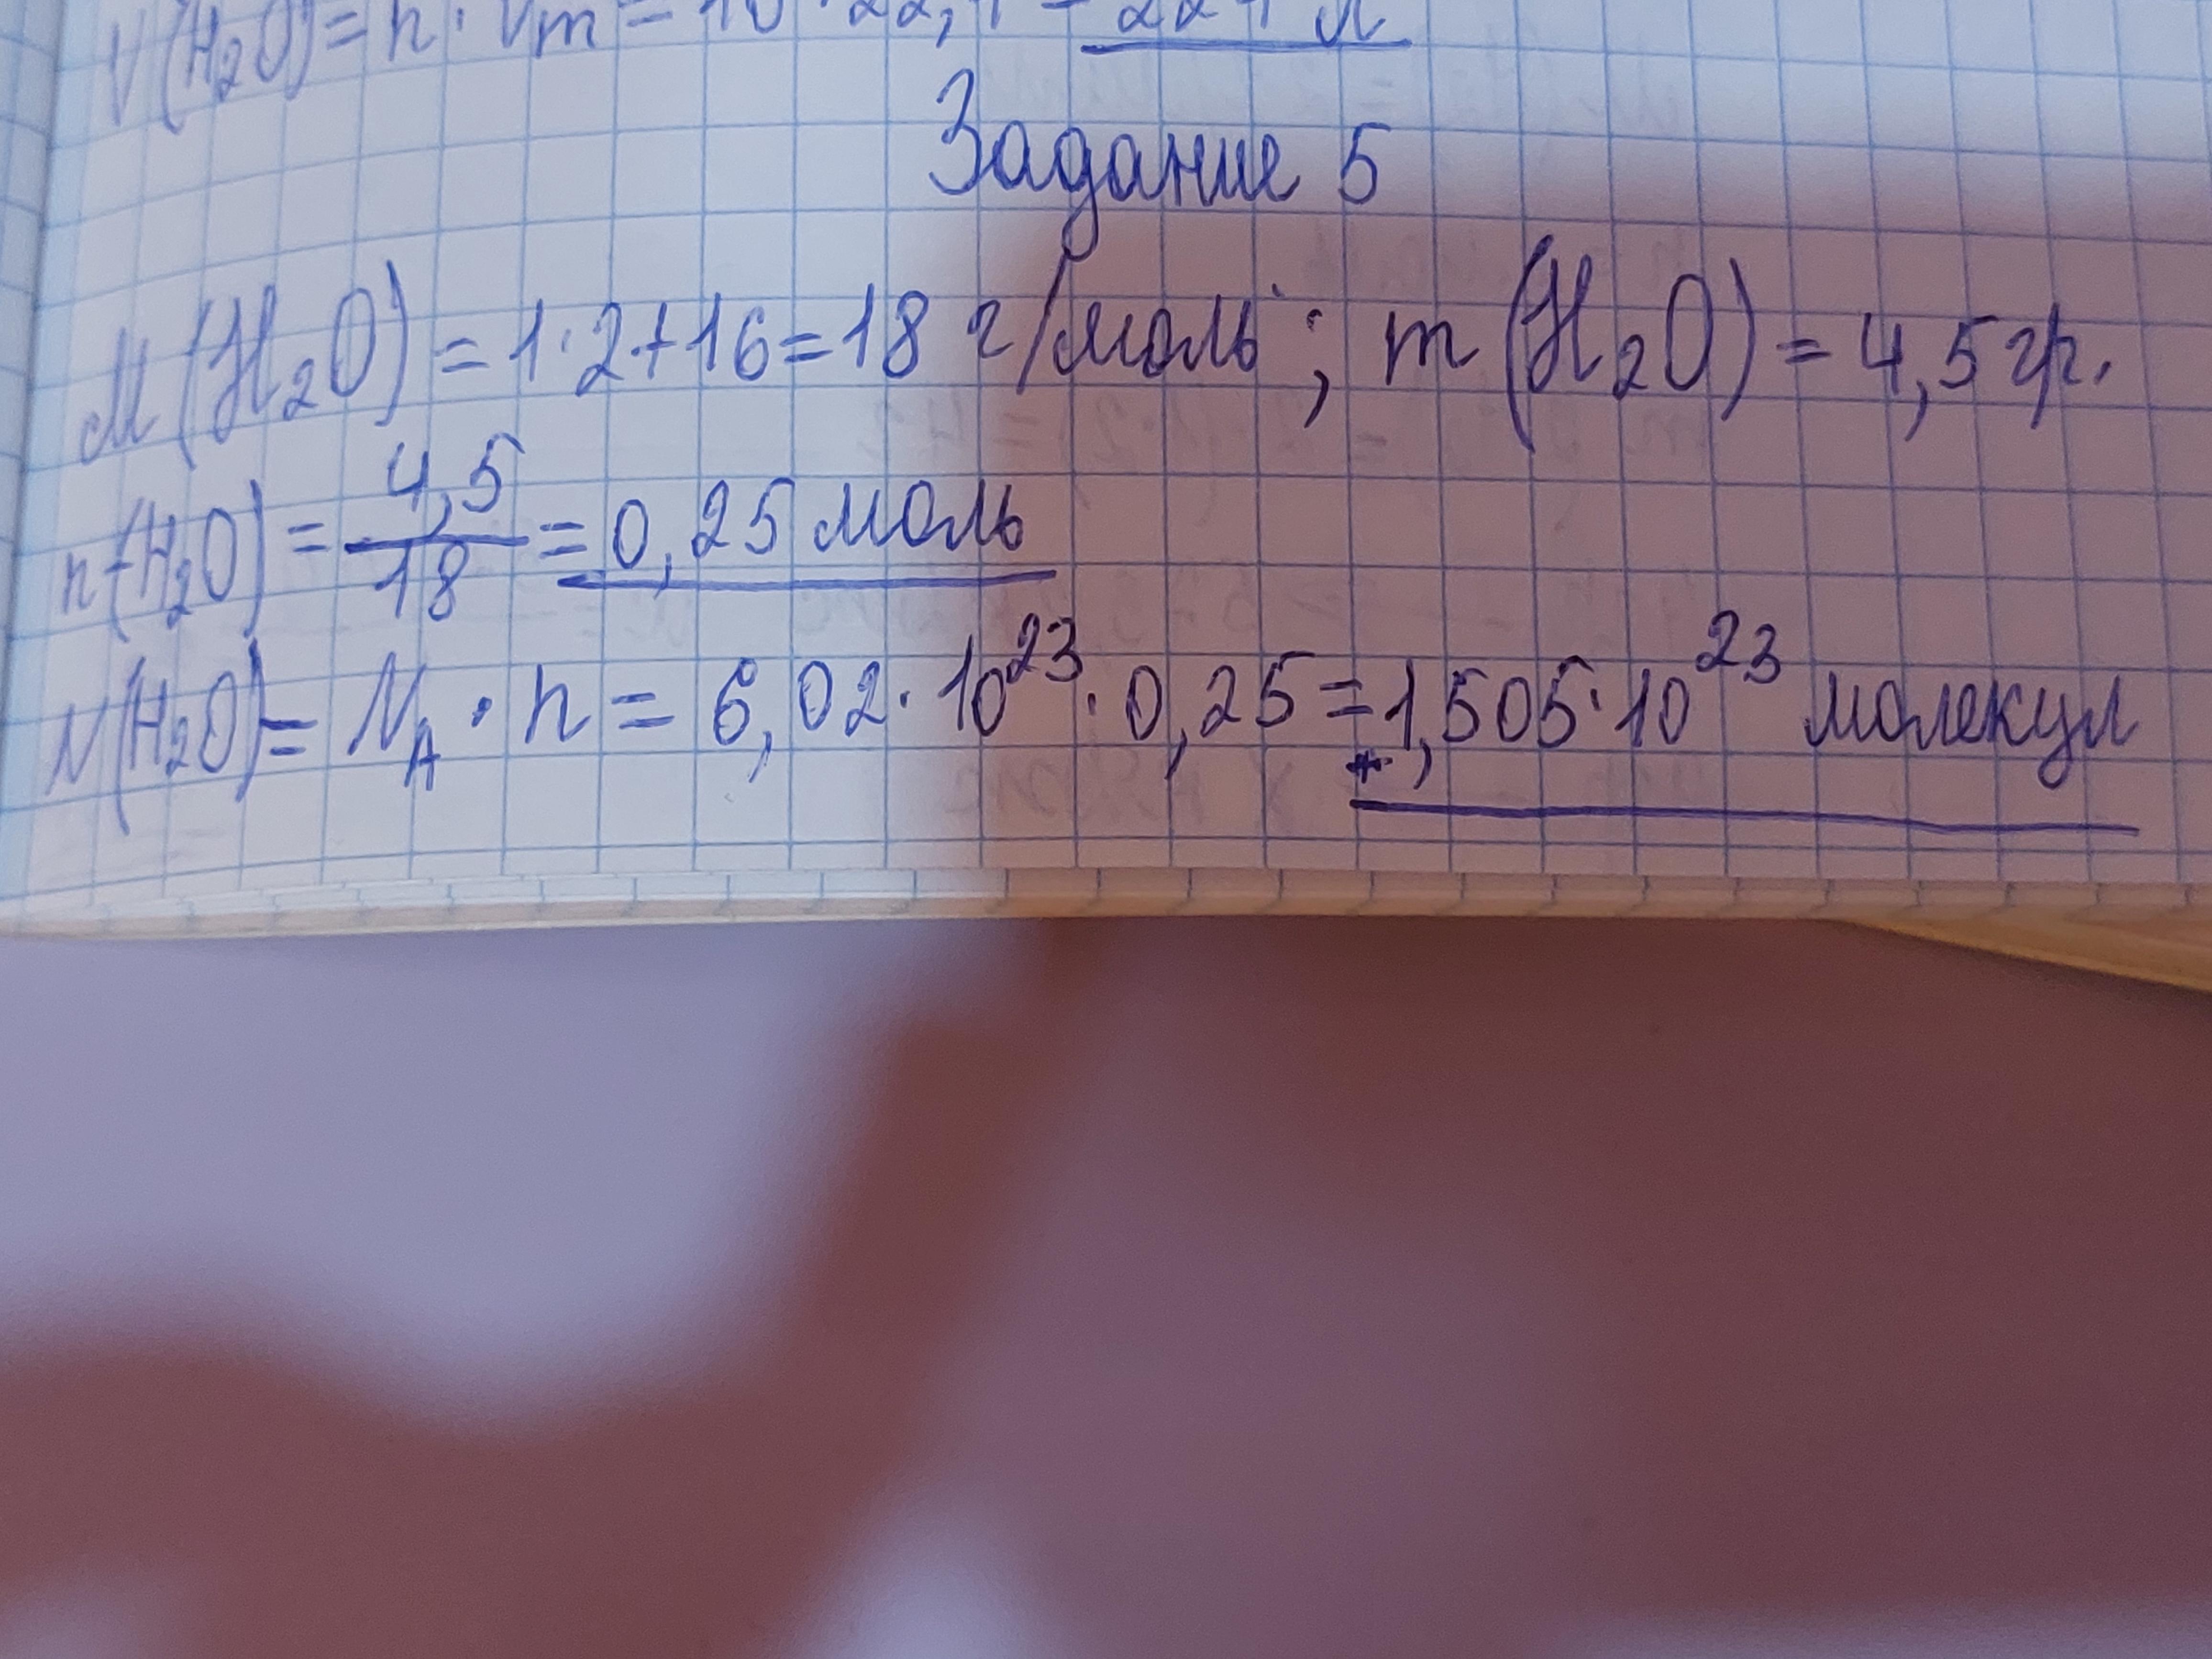 V(H₂O)=n·Vm=10·22,4=224 л
Задание 5
M(H₂O)=1·2+16=18 г/моль; m(H₂O)=4,5гр.
n(H₂O)=4,5/18=0,25 моль
N(H₂O)=N_A·n=6,02·10²³·0,25=1,505·10²³ молекул